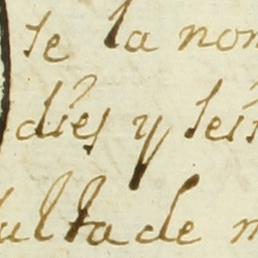 se la nom
dies y seis
falta de m